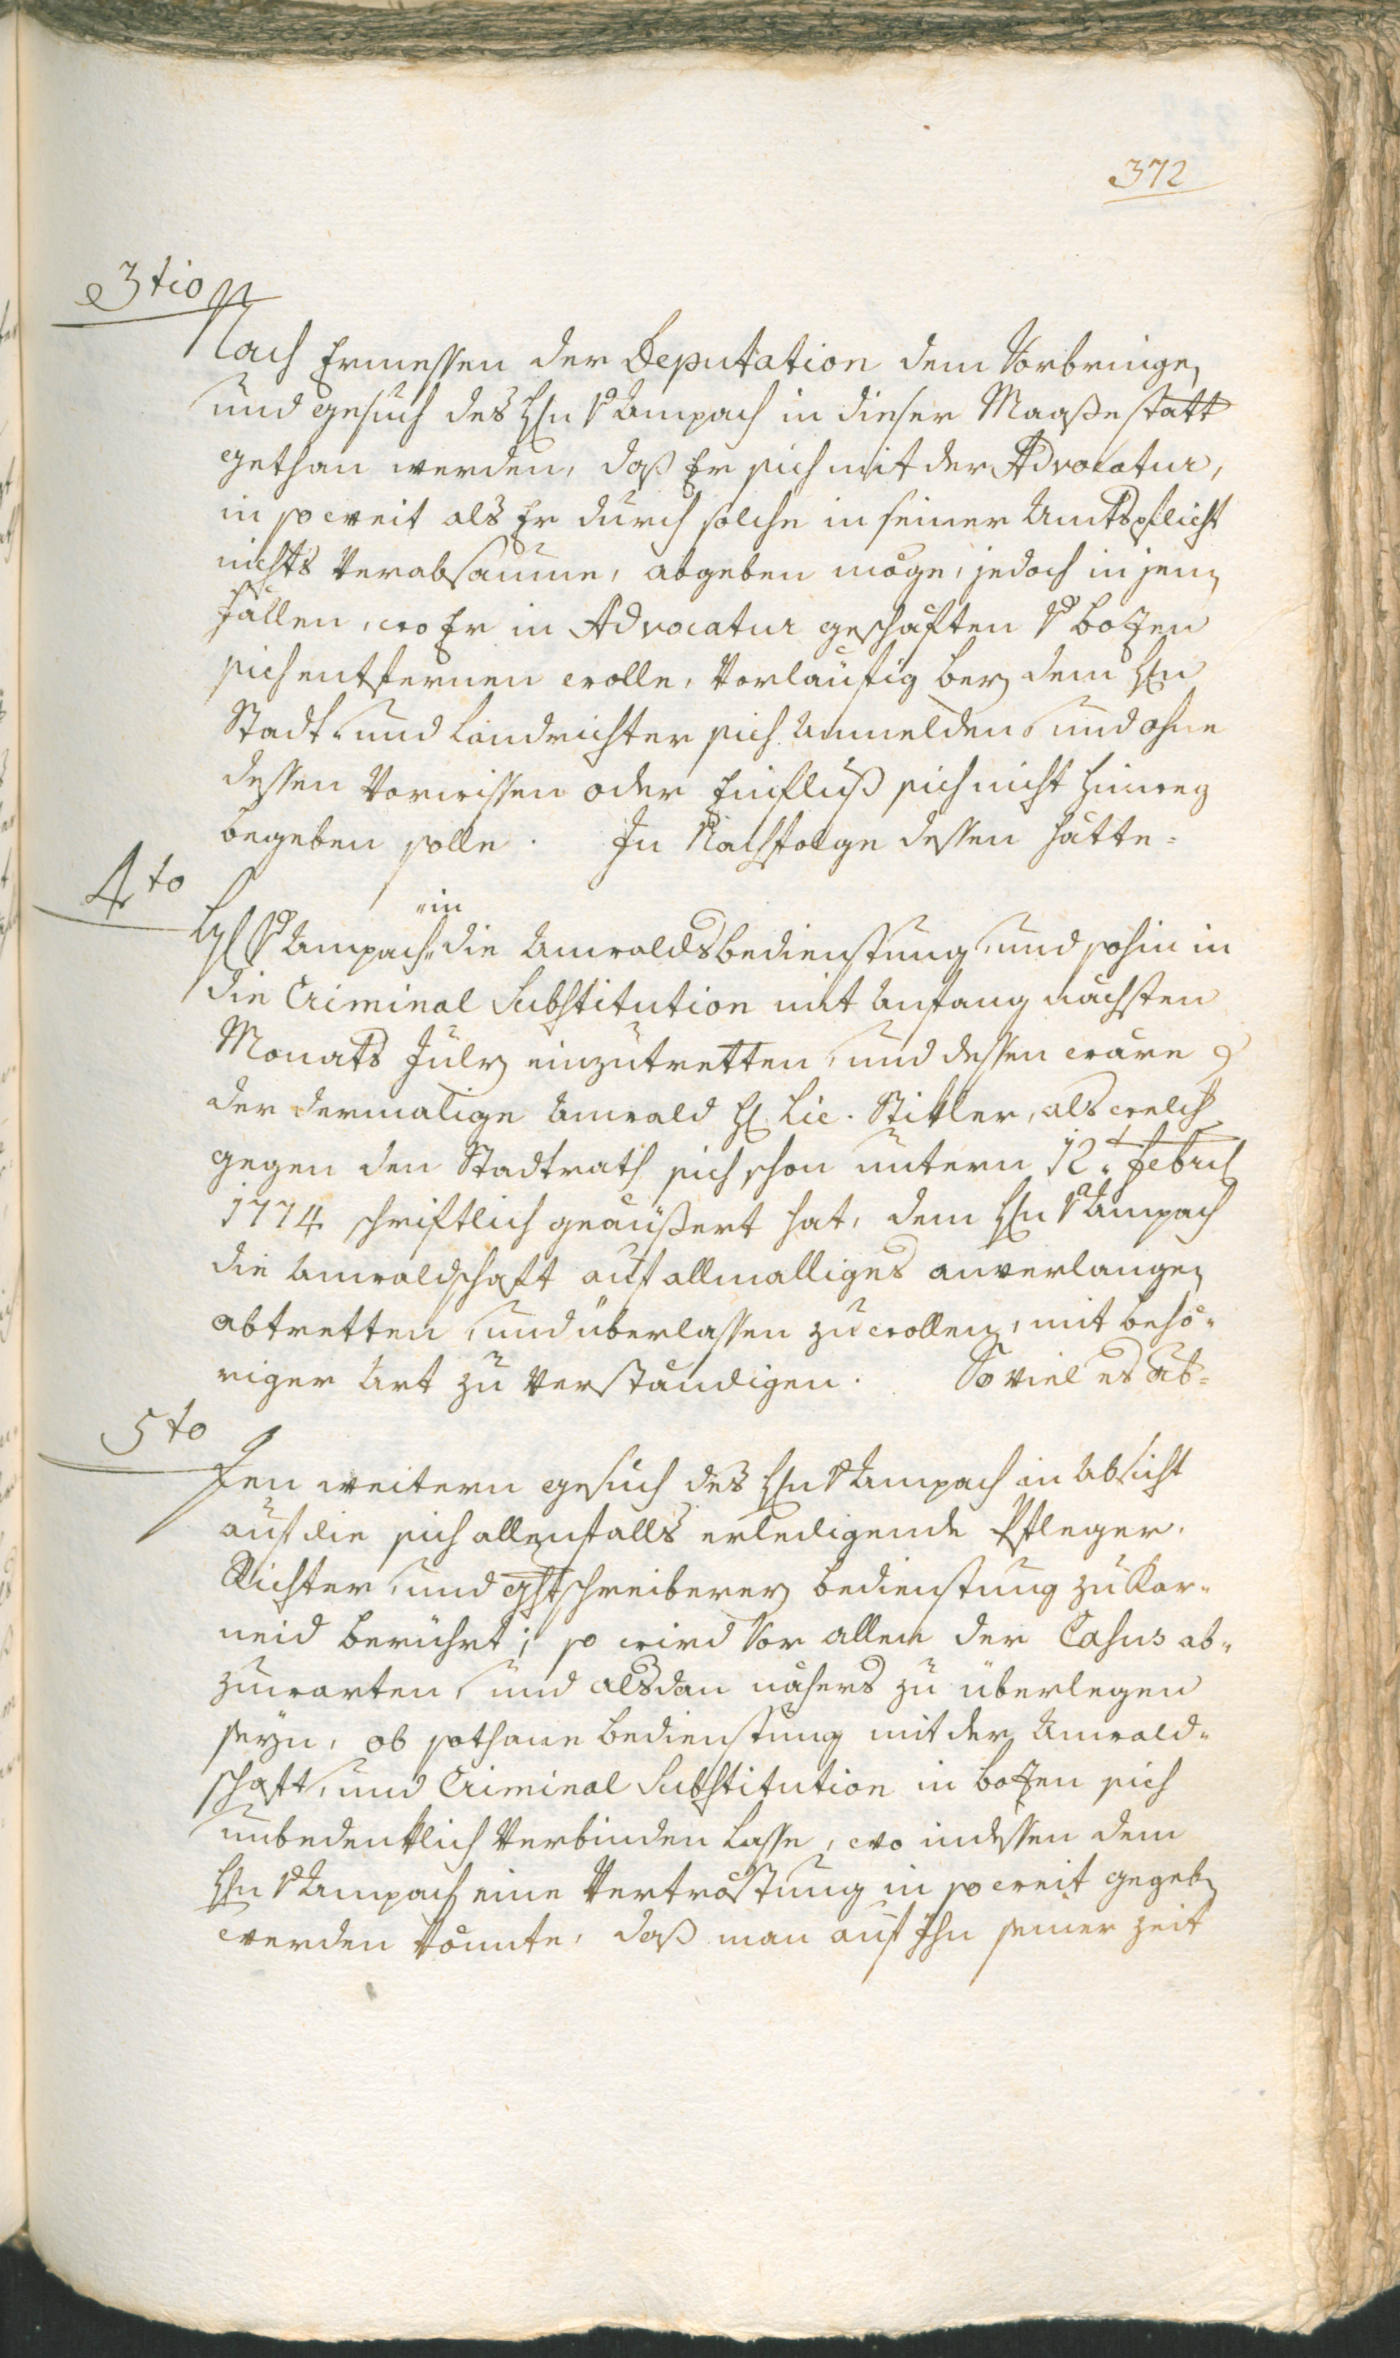 372
3tio
Nach Ermessen der Deputation dem Vorbringen
und gesuch des Hrn v Ampach in dieser Maaße statt
gethan werden, daß Er sich mit der Advocatur,
in so weit als Er durch solche in seiner Amtspflicht
nichts Verabsaume, abgeben möge, jedoch in jenen
Fällen, wo Er in Advocatur geschäften v Bozen
sich entfernen wolle, Vorläufig bey dem Hrn
Stadt- und Landrichter sich Anmelden, und ohne
dessen Vorwissen oder Einfluß sich nicht hinweg
begeben solle. In Nachfolge dessen hätte=
4to
"in
Hr v Ampach die Anwaldsbedienstung, und sohin in
die Criminal Substitution mit Anfang nächsten
Monats July einzutretten, und dessen wäre
der dermalige Anwald H. Lic. Stikler, als welch
gegen den Stadtrath sich schon untern 12t Febru
1774 schriftlich geäußert hat, dem Hrn v Ampach
die Anwaldschaft auf allmalliges anverlangen
abtretten, und überlassen zu wollen, mit behö-
riger Art zu Verständigen. So viel es ab=
5to
den weitern gesuch des Hrn v Ampach in Absicht
auf die sich allenfalls erledigende Pfleger-
Richter, und ghtschreiberey bedienstung zu Kar-
neid berührt; so wird Vor allem der Casus ab-
zuwarten, und alsdan nähers zu überlegen
seyn, ob sothane bedienstung mit der Anwald-
schaft, und Criminal Substitution in Bozen sich
unbedenklich Verbinden lasse, wo indessen dem
Hrn v Ampach eine Vertröstung in so weit gegeben
werden könnte, daß man auf Ihn seiner Zeit